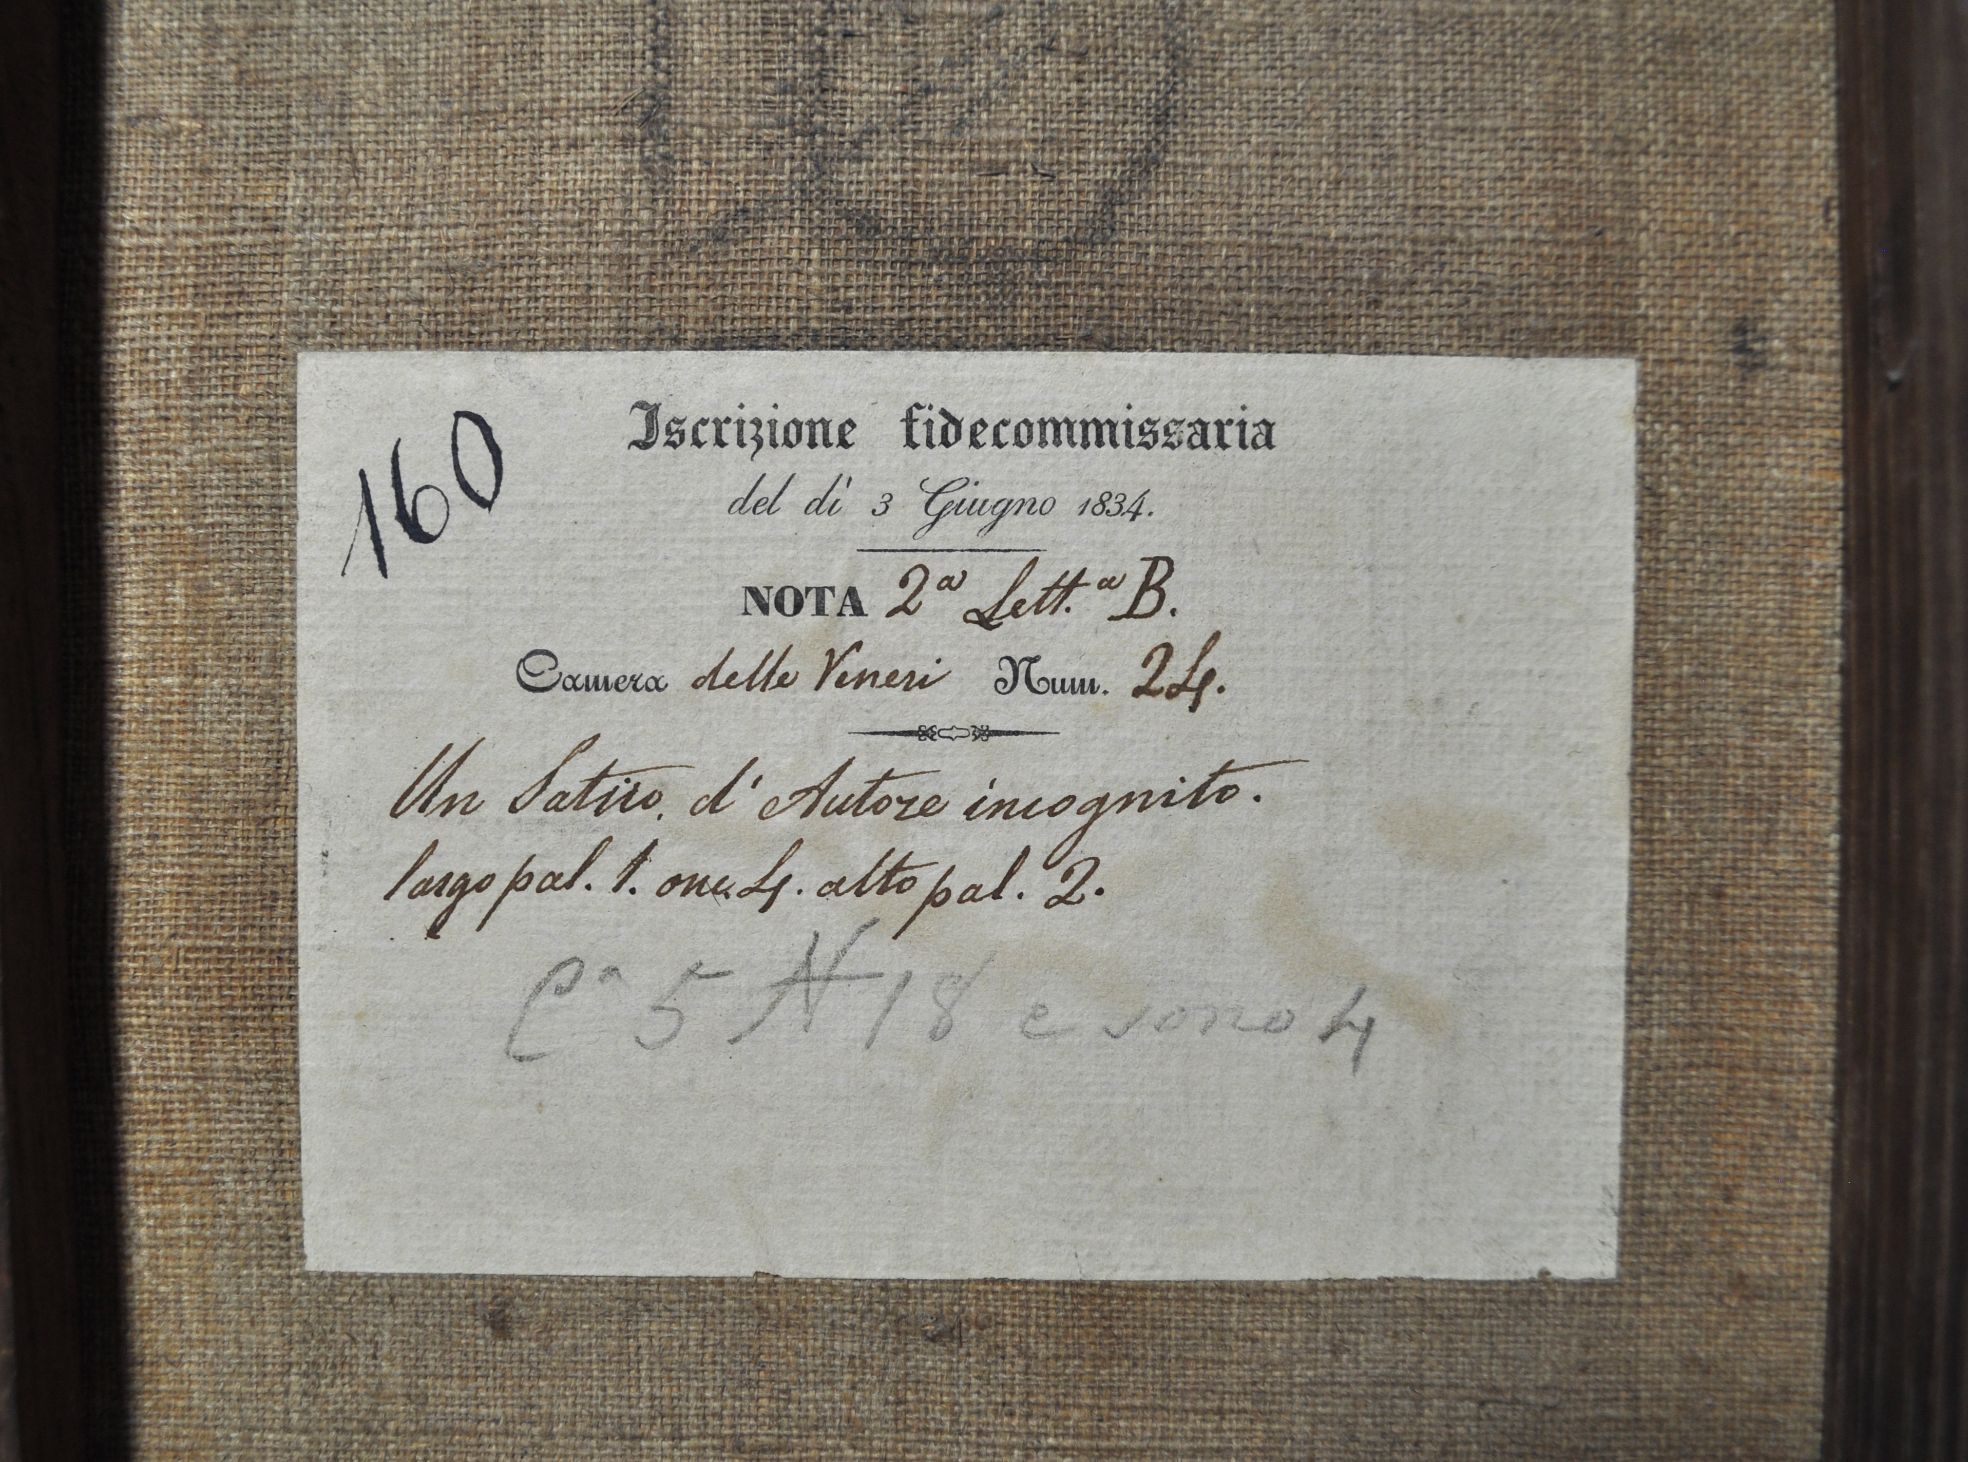 160
Iscrizione fidecommissaria
del dì 3 Giugno 1834.
NOTA 2ª Lett.ª B.
Camera delle Veneri Num. 24.
Un Satiro, d'Autore incognito.
largo pal. 1. onc. 4. alto pal. 2.
Cª 5 N 18 e sono 4